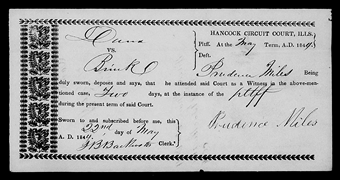 Dana
VS.
Brink
duly sworn, deposes and says, that he attended said Court as a Witness in the above-men-
tioned case, Two days, at the instance of the Plff
during the present term of said Court.
Sworn to and subscribed before me, this
22nd day of May
A. D. 1844.
J B Backenstos Clerk.
HANCOCK CIRCUIT COURT, ILLS.
Pltff. At the May Term, A.D. 1844.
Deft.
Prudence Miles Being
Prudence Miles